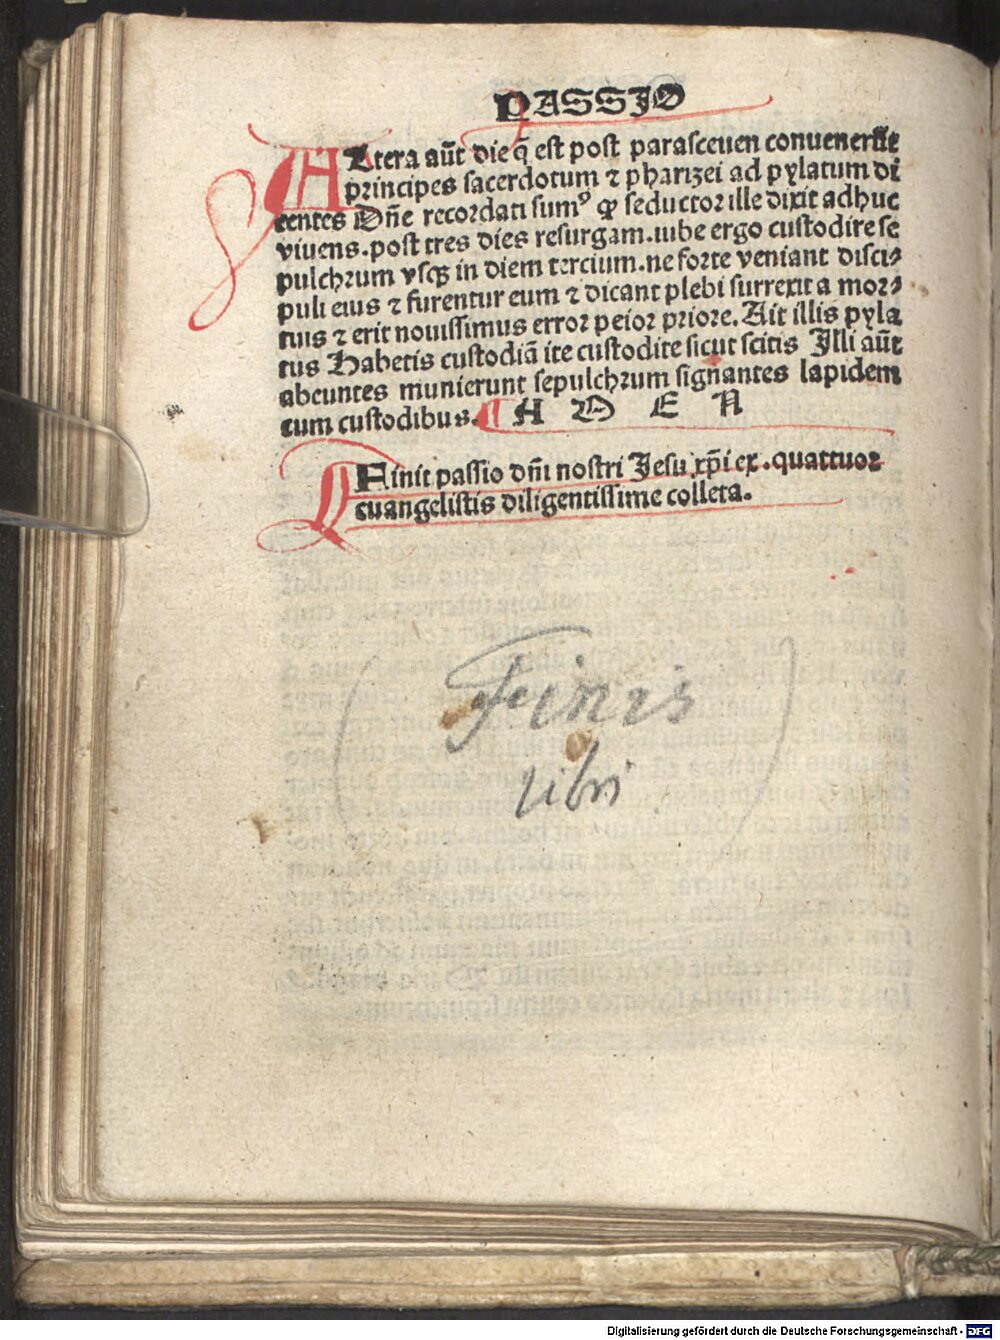 PASSIO
ALtera aūt die q̄ est post parasceuen conuenerūt
principes sacerdotum ⁊ pharizei ad pylatum di
centes Dn̄e recordati sumꝰ ꝙ seductor ille dixit adhuc
viuens.post tres dies resurgam.iube ergo custodire se
pulchrum vsqꝫ in diem tercium.ne forte veniant disci⸗
puli eius ⁊ furentur eum ⁊ dicant plebi surrexit a mor⸗
tuis ⁊ erit nouissimus error peior priore. Ait illis pyla
tus Habetis custodiā ite custodite sicut scitis Illi aūt
abeuntes munierunt sepulchrum signantes lapidem
cum custodibus. A M E N
Finit passio dn̄i nostri Jesu xp̄i ex.quattuor
euangelistis diligentissime collecta.
Finis
libri
Digitalisierung gefördert durch die Deutsche Forschungsgemeinschaft - DFG